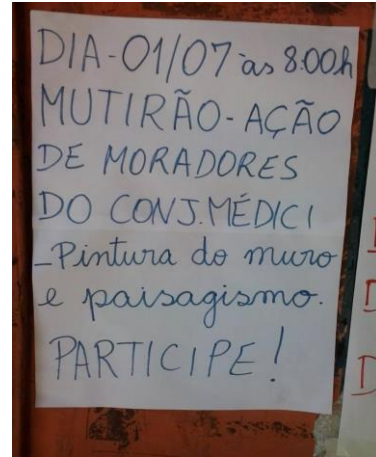 DIA-01/07 às 8:00h
MUTIRÃO-AÇÃO
DE MORADORES
DO CONJ.MÉDICI
-Pintura do muro
e paisagismo.
PARTICIPE!